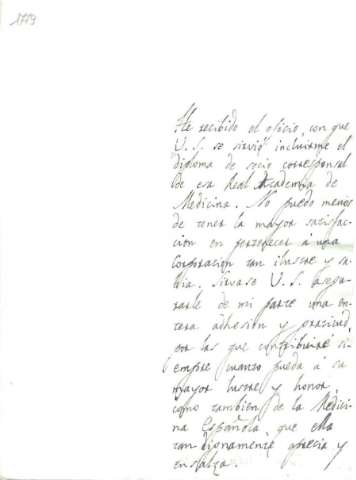 1779
He recibido el oficio, con que
V.S. se sirvió incluirme el
diploma de socio corresponsal
de esa Real Academia de
Medicina. No puedo menos
de tener la mayor satisfac-
cion en pertenecer á una
corporacion tan ilustre y sa-
bia. Sirvase V.S. asegu-
rarle de mi parte una en-
tera adhesion y gratitud
por las que contribuiré si-
empre cuanto pueda á su
mayor lustre y honor,
como tambien de la Medici-
na Española, que ella
tan dignamente aprecia y
ensalza.